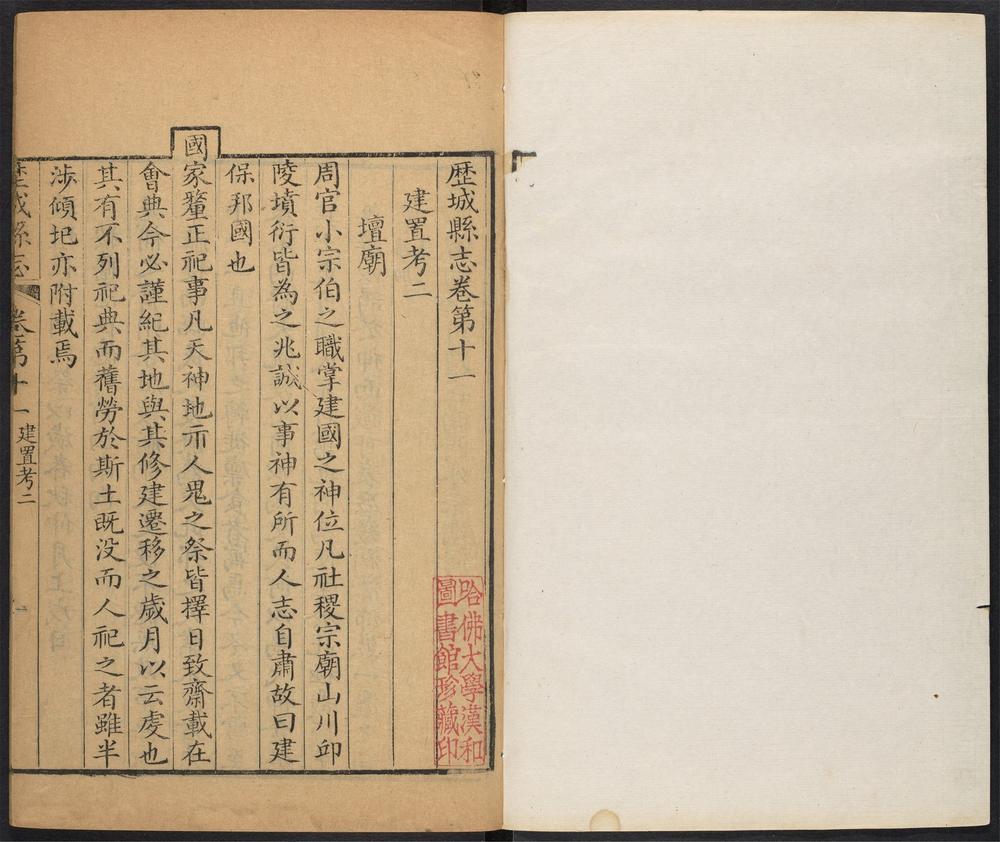 歴城縣志卷第十一
建置考二
壇廟
周官小宗伯之職掌建國之神位凡社稷宗廟山川邱
陵墳衍皆為之兆誠以事神有所而人志自肅故曰建
保邦國也
國家釐正祀事凡天神地示人鬼之祭皆擇日致齋載在
會典今必謹紀其地與其修建遷移之歲月以云虔也
其有不列祀典而舊勞於斯土既没而人祀之者雖半
涉傾圯亦附載焉
歴城縣志 卷第十一 建置考二 一
哈佛大學漢和
圖書館珍藏印